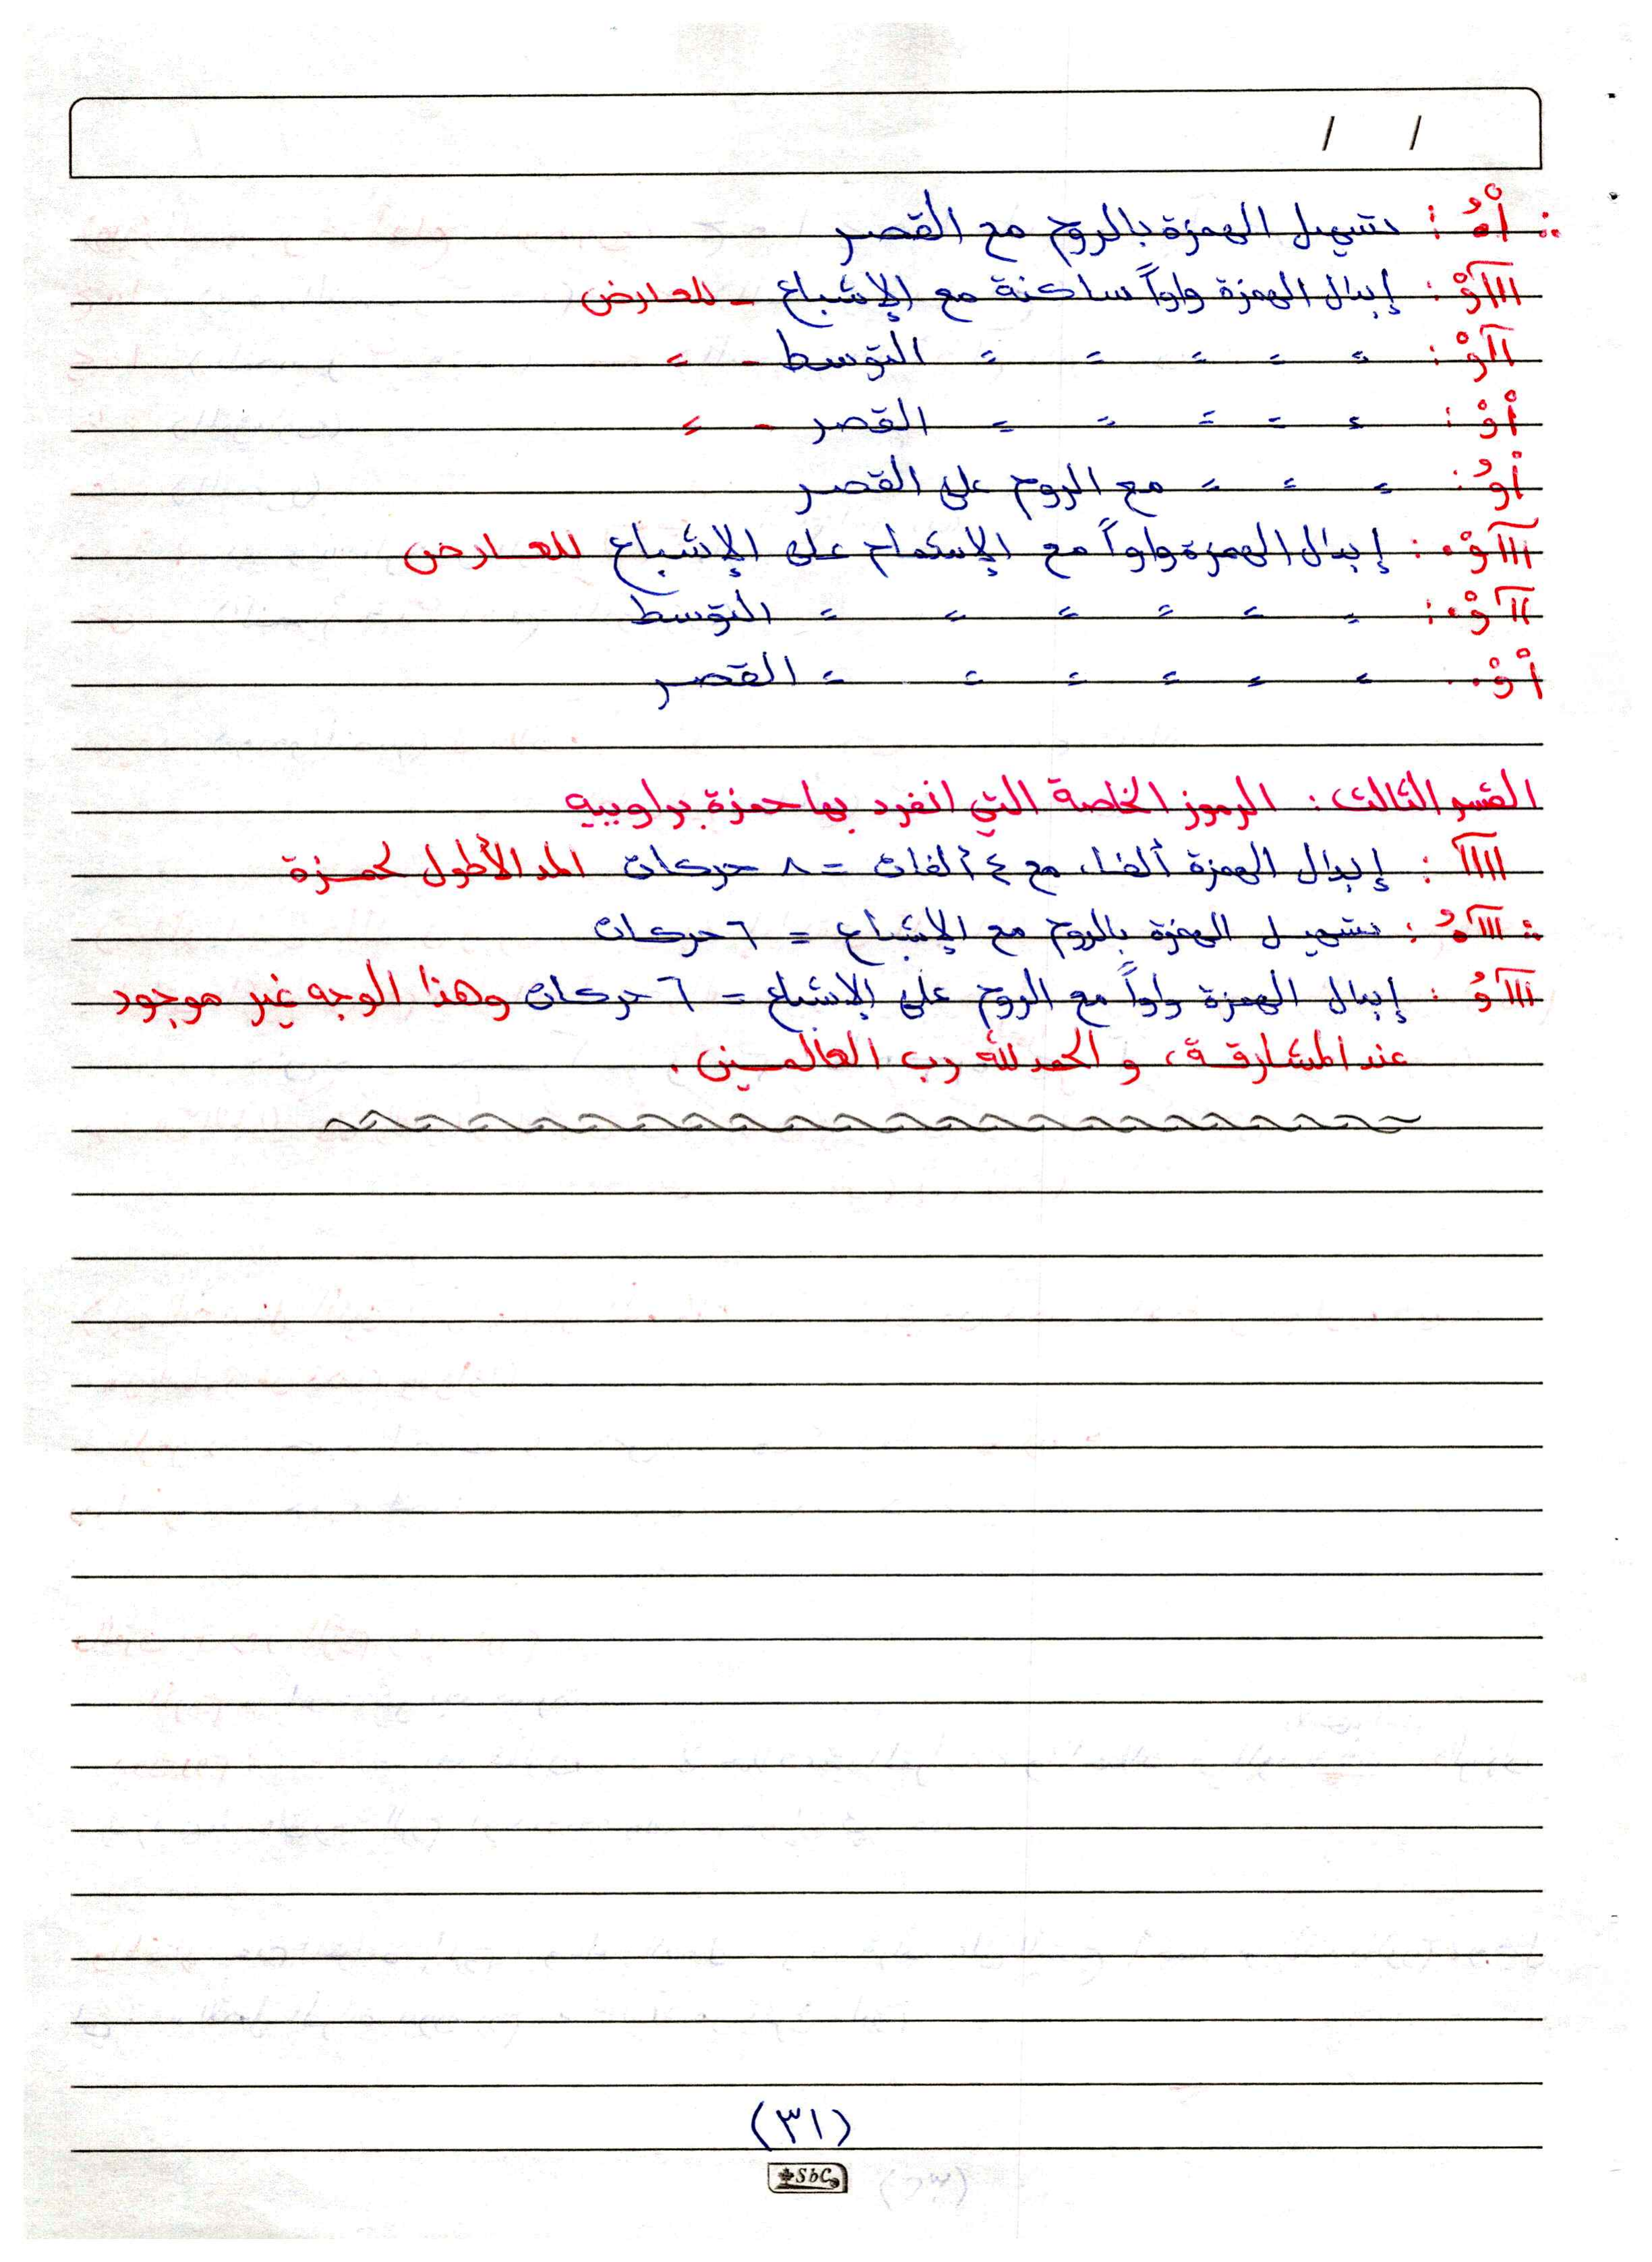 / /
أُ : تسهيل الهمزة بالروم مع القصر
اااآوْ : إبدال الهمزة واواً ساكنة مع الإشباع - للعارض
اآوْ : = = = = = = التوسط - =
أوْ : = = = = = = القصر - =
أوُ : = = = مع الروم على القصر
اااآوْ. : إبدال الهمزة واواً مع الإشمام على الإشباع للعارض
اآوْ. : = = = = = = التوسط
أوْ. : = = = = = = القصر
القسم الثالث : الرموز الخاصة التي انفرد بها حمزة براوييه
ااااآ : إبدال الهمزة ألفا، مع ٤ ألفات = ٨ حركات المد الأطول لحمزة
اااآُ : تسهيل الهمزة بالروم مع الإشباع = ٦ حركات
اااآوُ : إبدال الهمزة واواً مع الروم على الإشباع = ٦ حركات وهذا الوجه غير موجود
عند المشارقة، والحمد لله رب العالمين.
(٣١)
SbC